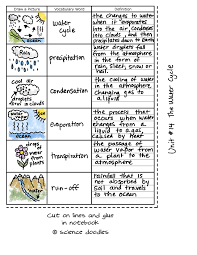 Draw a Picture
Vocabulary Word
Definition
water
cycle
the changes to water
when it evaporates
into the air, condenses
into clouds, and then
precipitates down to Earth
precipitation
water droplets fall
from the atmosphere
in the form of
rain, sleet, snow or
hail.
cool air
droplets
form in clouds
Condensation
the cooling of water
in the atmosphere,
changing gas to
a liquid
evaporation
the process that
occurs when water
changes from a
liquid to a gas,
caused by heat
drops
water
from
plants
Transpiration
the passage of
water vapor from
a plant to the
atmosphere
run-off
rainfall that is
not absorbed by
Soil and travels
to the ocean
Unit #14 The Water Cycle
Cut on lines and glue
in notebook
© science doodles